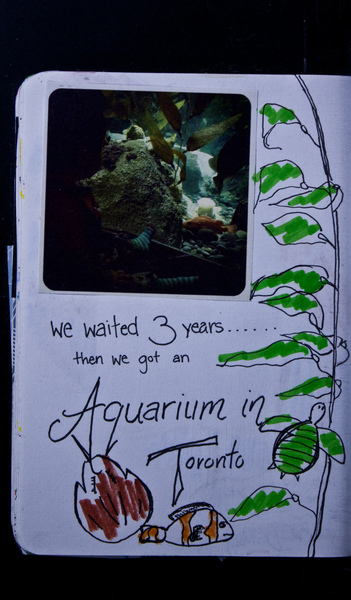 We waited 3 years......
then we got an
Aquarium in
Toronto